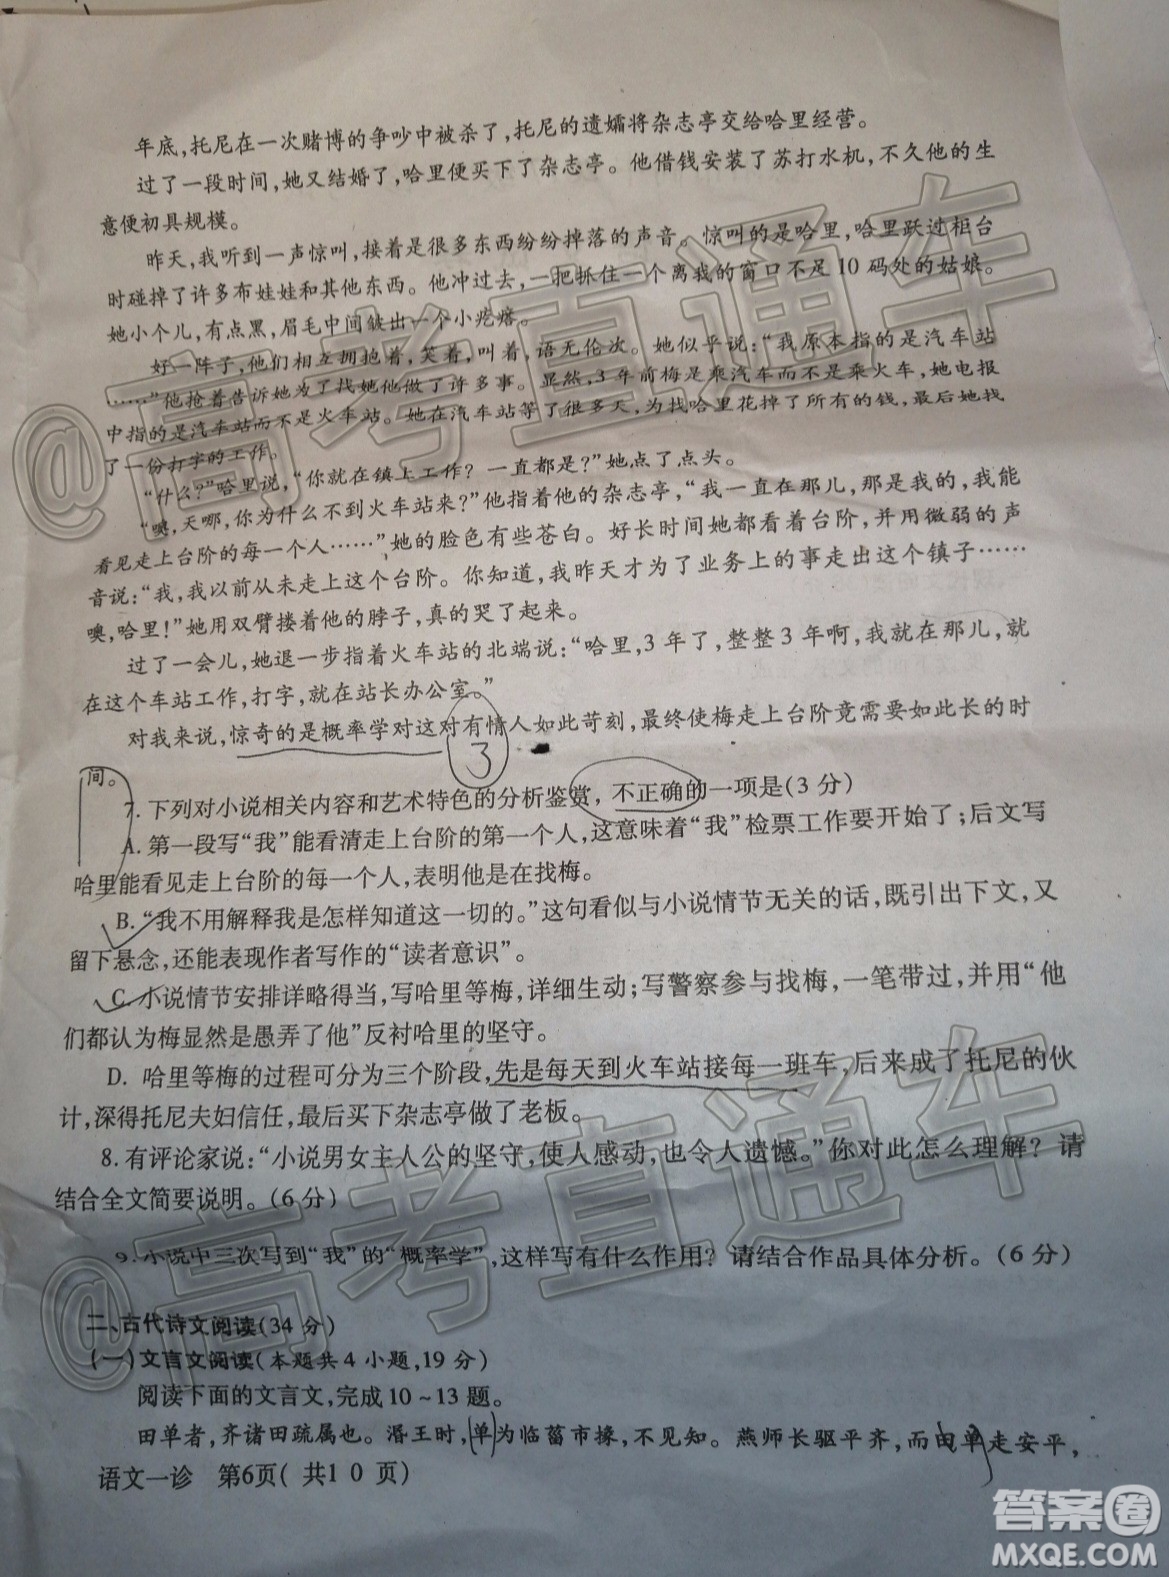 年底,托尼在一次赌博的争吵中被杀了,托尼的遗孀将杂志亭交给哈里经营。
过了一段时间,她又结婚了,哈里便买下了杂志亭。他借钱安装了苏打水机,不久他的生
意便初具规模。
昨天,我听到一声惊叫,接着是很多东西纷纷掉落的声音。惊叫的是哈里,哈里跃过柜台
时碰掉了许多布娃娃和其他东西。他冲过去,一把抓住一个离我的窗口不足10码处的姑娘。
她小个儿,有点黑,眉毛中间皱出一个小疙瘩。
好一阵子,他们相互拥抱着,笑着,叫着,语无伦次。她似乎说:“我原本指的是汽车站
……”他抢着告诉她为了找她他做了许多事。显然,3年前梅是乘汽车而不是乘火车,她电报
中指的是汽车站而不是火车站。她在汽车站等了很多天,为找哈里花掉了所有的钱,最后她找
了一份打字的工作。
“什么?”哈里说,“你就在镇上工作?一直都是?”她点了点头。
“噢,天哪,你为什么不到火车站来?”他指着他的杂志亭,“我一直在那儿,那是我的,我能
看见走上台阶的每一个人……”她的脸色有些苍白。好长时间她都看着台阶,并用微弱的声
音说:“我,我以前从未走上这个台阶。你知道,我昨天才为了业务上的事走出这个镇子……
噢,哈里!”她用双臂搂着他的脖子,真的哭了起来。
过了一会儿,她退一步指着火车站的北端说:“哈里,3年了,整整3年啊,我就在那儿,就
在这个车站工作,打字,就在站长办公室。”
对我来说,惊奇的是概率学对这对有情人如此苛刻,最终使梅走上台阶竟需要如此长的时
间。
3
7. 下列对小说相关内容和艺术特色的分析鉴赏,不正确的一项是(3分)
A. 第一段写“我”能看清走上台阶的第一个人,这意味着“我”检票工作要开始了;后文写
哈里能看见走上台阶的每一个人,表明他是在找梅。
B. “我不用解释我是怎样知道这一切的。”这句看似与小说情节无关的话,既引出下文,又
留下悬念,还能表现作者写作的“读者意识”。
C. 小说情节安排详略得当,写哈里等梅,详细生动;写警察参与找梅,一笔带过,并用“他
们都认为梅显然是愚弄了他”反衬哈里的坚守。
D. 哈里等梅的过程可分为三个阶段,先是每天到火车站接每一班车,后来成了托尼的伙
计,深得托尼夫妇信任,最后买下杂志亭做了老板。
8. 有评论家说:“小说男女主人公的坚守,使人感动,也令人遗憾。”你对此怎么理解?请
结合全文简要说明。(6分)
9. 小说中三次写到“我”的“概率学”,这样写有什么作用?请结合作品具体分析。(6分)
二、古代诗文阅读(34分)
(一)文言文阅读(本题共4小题,19分)
阅读下面的文言文,完成10~13题。
田单者,齐诸田疏属也。湣王时,单为临菑市掾,不见知。燕师长驱平齐,而田单走安平,
语文一诊 第6页( 共1 0 页)
@高考直通车
@高考直通车
答案圈
MXQE.COM